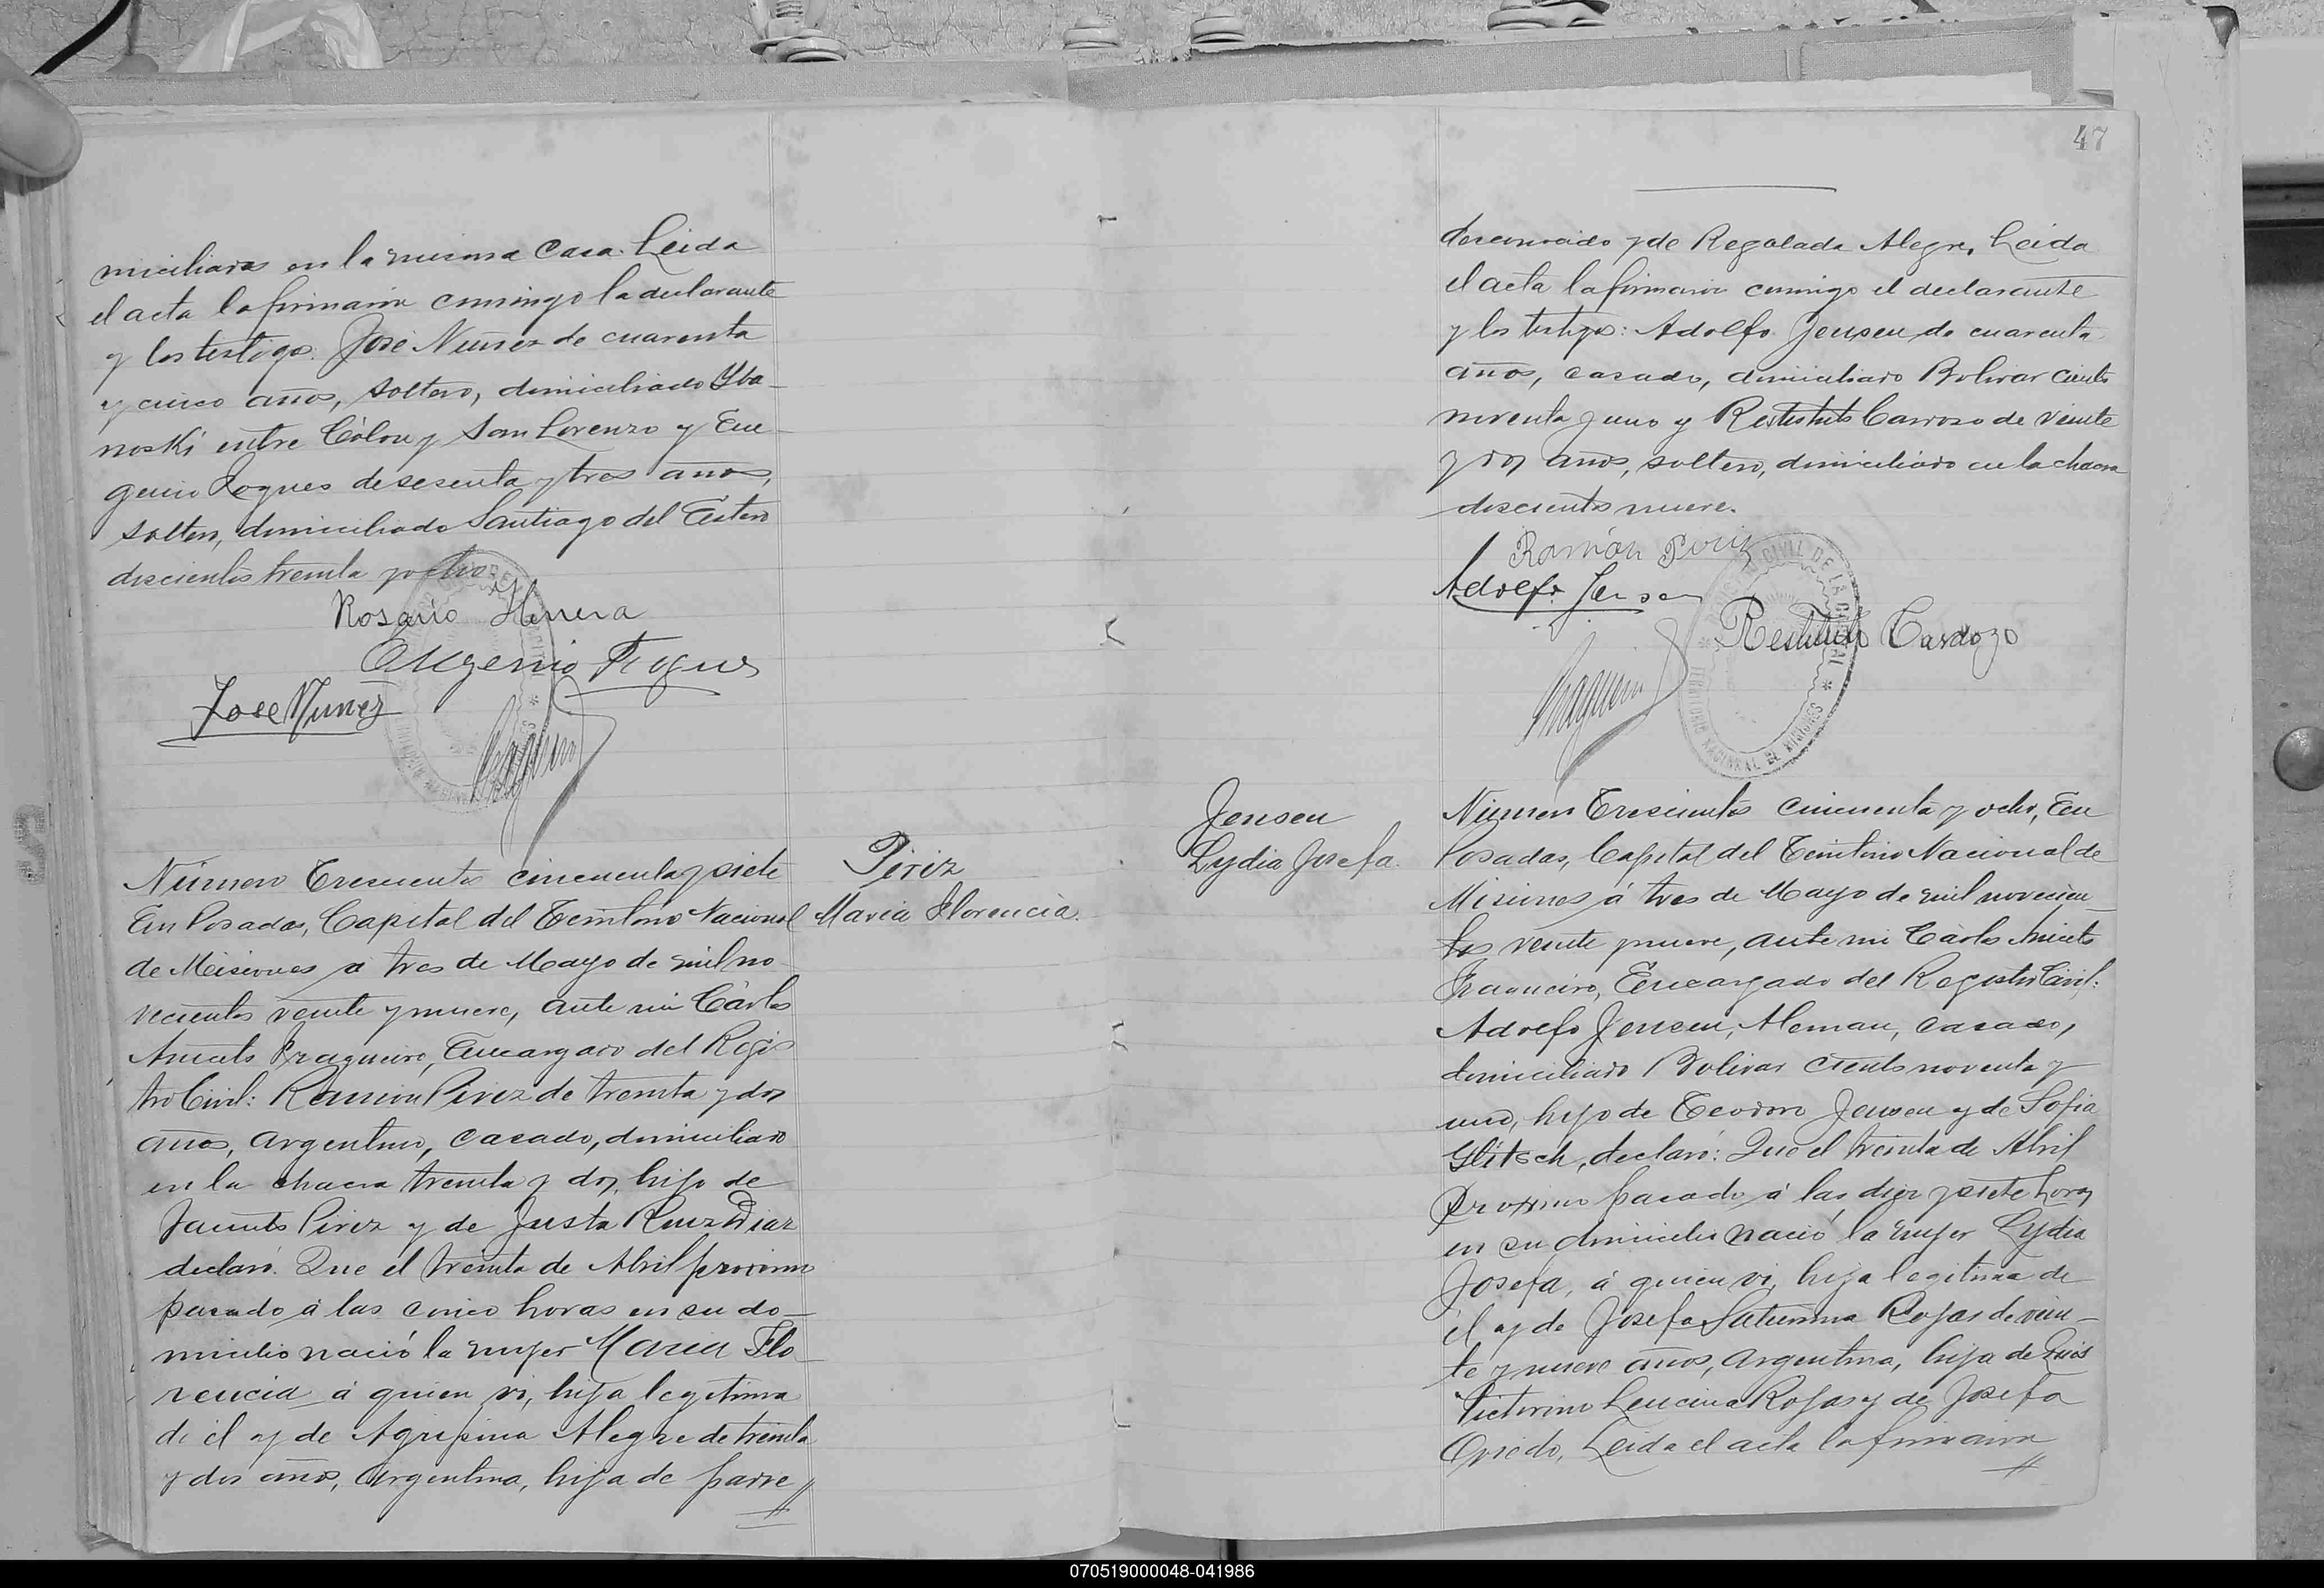 miciliaros en la misma casa. Leida
el acta la firmaron conmigo la declarante
y los testigos: José Nuñez de cuarenta
y cinco años, soltero, domiciliado Yba-
noski entre Cólon y San Lorenzo y Eu-
genio Roques de sesenta y tres años,
soltero, domiciliado Santiago del Estero
doscientos treinta y ocho.
Rosario Herrera
Eugenio Roques
Jose Nuñez
Número Trescientos cincuenta y siete
En Posadas, Capital del Territorio Nacional
de Misiones á tres de Mayo de mil no-
vecientos veinte y nueve, ante mi Cárlos
Aniceto Fragueiro, Encargado del Regis
tro Civil: Ramon Piriz de treinta y dos
años, argentino, casado, domiciliado
en la chacra treinta y dos, hijo de
Jacinto Piriz y de Justa Ruiz Diaz
declaró: Que el treinta de Abril proximo
pasado á las cinco horas en su do-
micilio nació la mujer Maria Flo-
rencia á quien vi, hija legitima
de él y de Agripina Alegre de treinta
y dos años, argentina, hija de padre //
Piriz
Maria Florencia.
47
desconocido y de Regalada Alegre. Leida
el acta la firmaron conmigo el declarante
y los testigos: Adolfo Jensen de cuarenta
años, casado, domiciliado Bolivar ciento
noventa y uno y Restituto Cardozo de veinte
y dos años, soltero, domiciliado en la chacra
doscientos nueve.
Ramón Piriz
Adolfo Jensen
Restituto Cardozo
REGISTRO CIVIL DE LA CAPITAL * TERRITORIO NACIONAL DE MISIONES *
Jensen
Lydia Josefa.
Número Trescientos cincuenta y ocho, En
Posadas, Capital del Territorio Nacional de
Misiones á tres de Mayo de mil novecien-
tos veinte y nueve, ante mi Cárlos Aniceto
Fragueiro, Encargado del Registro Civil:
Adolfo Jensen, Aleman, casado,
domiciliado Bolivar ciento noventa y
uno, hijo de Teodoro Jensen y de Sofia
Glitsch, declaró: Que el treinta de Abril
proximo pasado á las diez y siete horas
en su domicilio nació la mujer Lydia
Josefa, á quien vi, hija legitima de
él y de Josefa Saturnina Rojas de vein-
te y nueve años, argentina, hija de Luis
Victorino Leucina Rojas y de Josefa
Oviedo, Leida el acta la firmaron
//
070519000048-041986